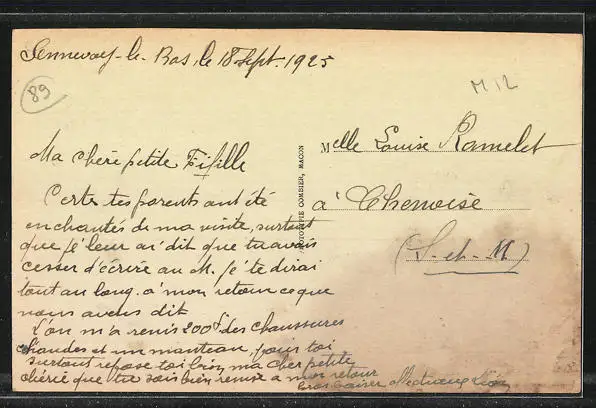 Sennevoy-le-Bas, le 18 Sept. 1925
89
M 12
Ma chère petite Fifille
Certe tes parents ont été
enchantés de ma visite, surtout
que je leur ai dit que tu avais
cesser d'écrire au M. je te dirai
tout au long. à mon retour ce que
nous avons dit
L'on m'a remis 200f des chaussures
chaudes et un manteau, pour toi
surtout repose toi bien ma cher petite
chérie que tu sois bien remise a mon retour
Gros baiser
PHOTOTYPIE COMBIER, MACON
Melle Louise Ramelet
à Chenoise
(S-et-M)